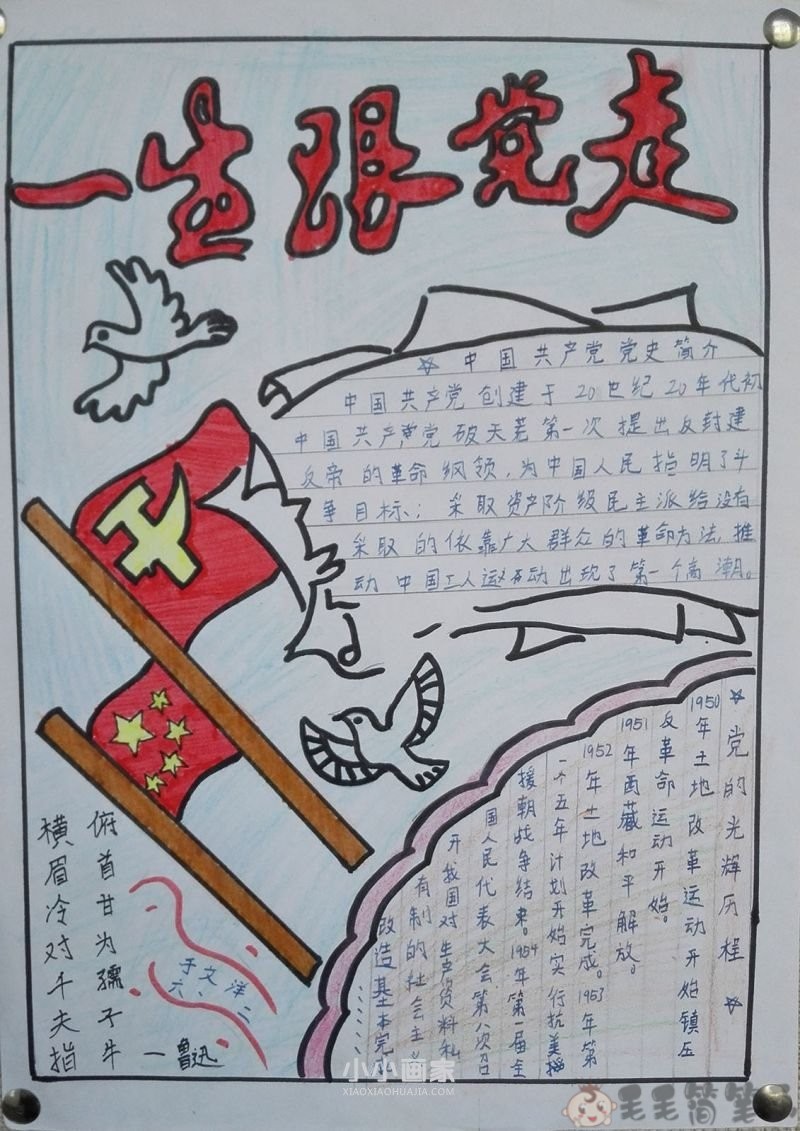 一生跟党走
☆ 中国共产党党史简介
中国共产党创建于20世纪20年代初
中国共产党破天荒第一次提出反封建
反帝的革命纲领,为中国人民指明了斗
争目标;采取资产阶级民主派给没有
采取的依靠广大群众的革命方法,推
动中国工人运动出现了第一个高潮。
☆党的光辉历程☆
1950年土地改革运动开始镇压
反革命运动开始。
1951年西藏和平解放。
1952年土地改革完成。1953年第
一个五年计划开始实行抗美
援朝战争结束。1954年第一届全
国人民代表大会第八次召
开我国对生产资料私
有制的社会主
改造基本完
横眉冷对千夫指
俯首甘为孺子牛
—鲁迅
六、二
于文洋
小小画家
XIAOXIAOHUAJIA.COM
毛毛简笔